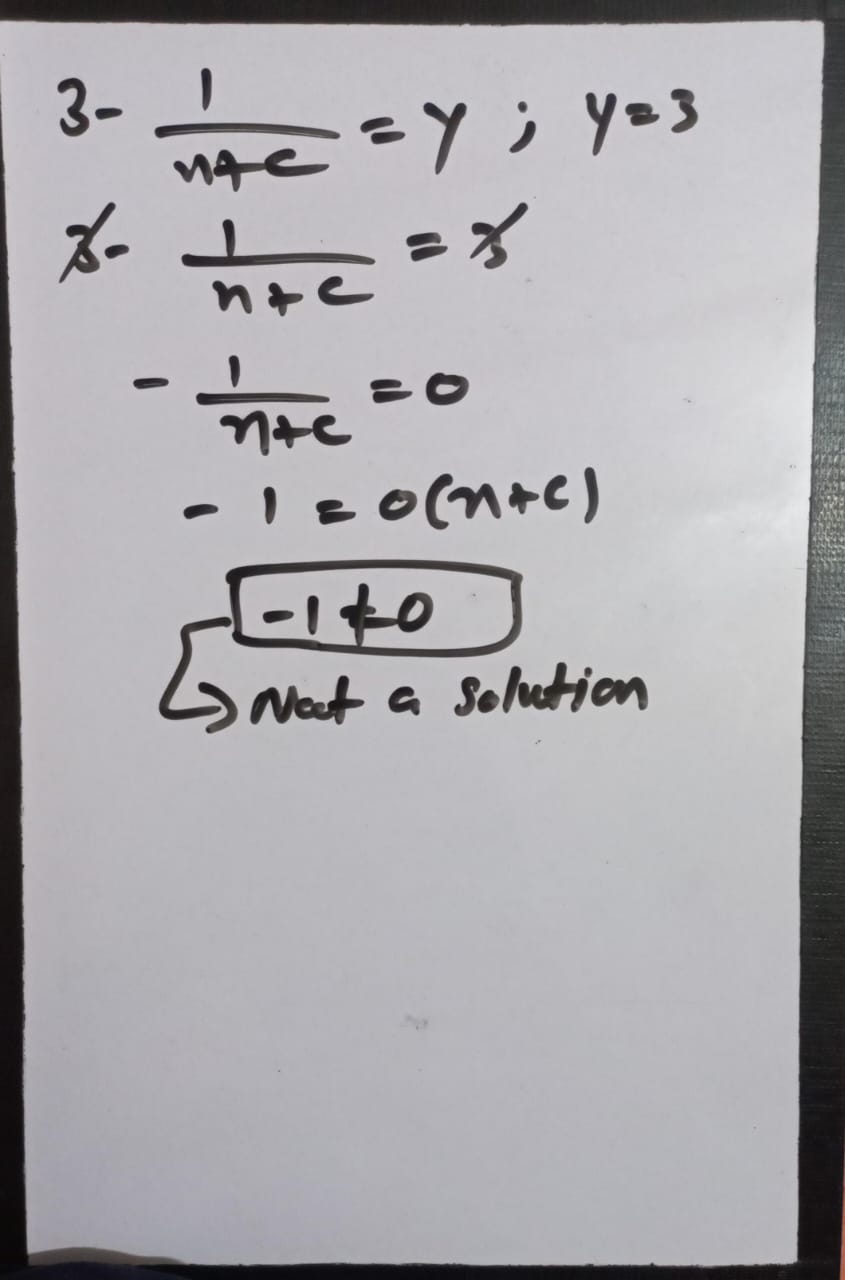 3- 1/(n+c) = y ; y=3
3- 1/(n+c) = 3
- 1/(n+c) = 0
- 1 = 0(n+c)
-1 ≠ 0
↳ Not a solution